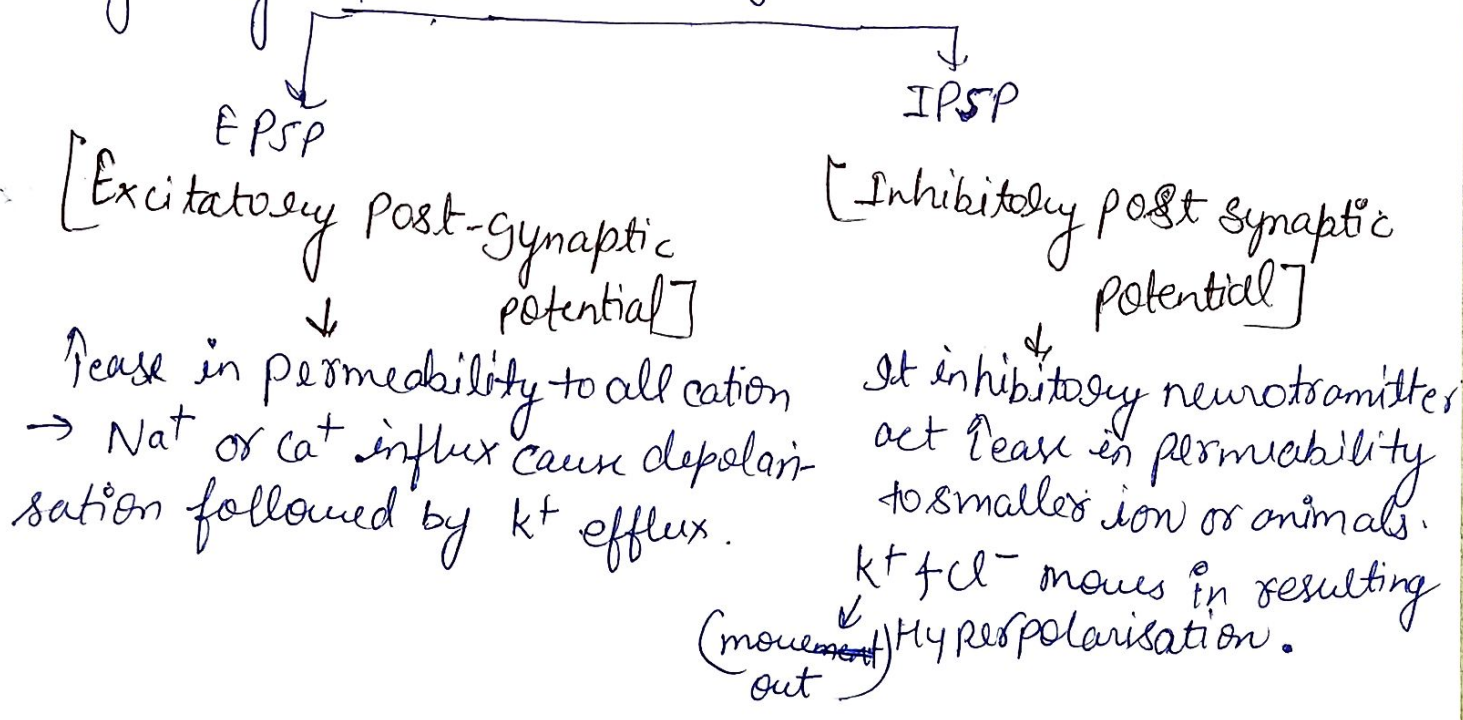 EPSP
[Excitatory Post-Synaptic
potential]
↓
↑ease in permeability to all cation
→ Na⁺ or Ca⁺ influx cause depolari-
sation followed by K⁺ efflux.
IPSP
[Inhibitory post synaptic
potential]
↓
It inhibitory neurotramitter
act ↑ease in permiability
to smaller ion or animals.
K⁺ + Cl⁻ moves in resulting
(move
out)
Hyperpolarisation.